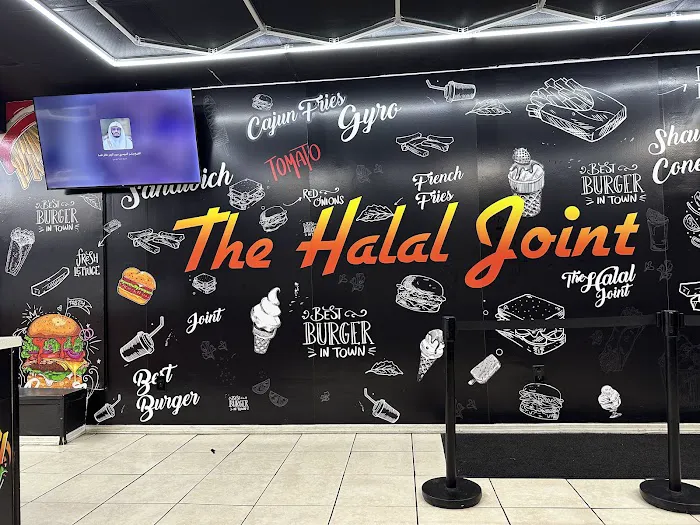 Cajun Fries
Gyro
TOMATO
Sandwich
RED
ONIONS
French
Fries
BEST
BURGER
IN TOWN
Shaw
Cone
BEST
BURGER
IN TOWN
FRESH
LETTUCE
The Halal Joint
The Halal
Joint
Joint
BEST
BURGER
IN TOWN
FRESH
Best
Burger
BEST
BURGER
IN TOWN